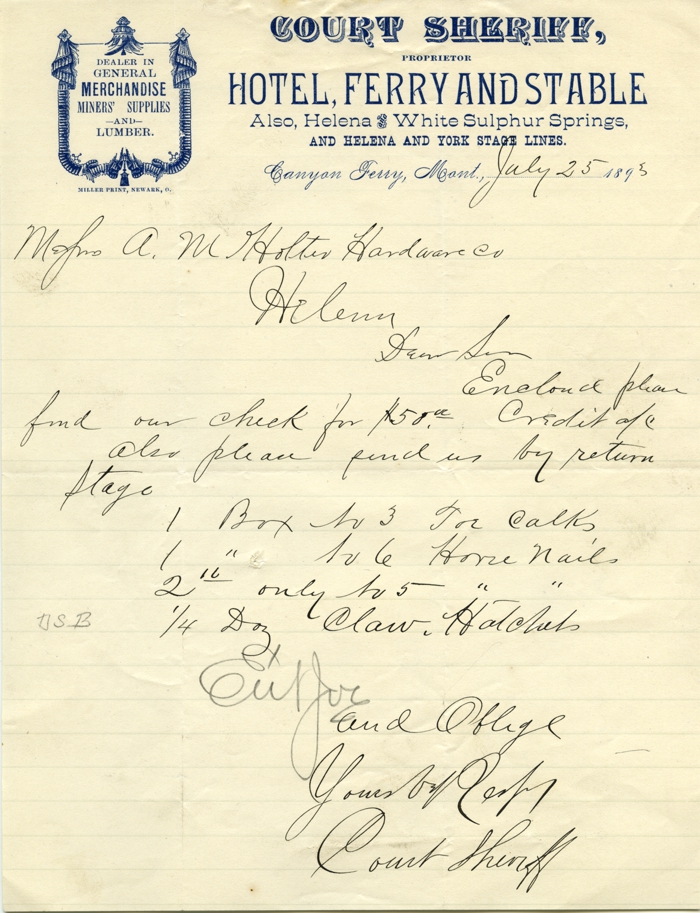 COURT SHERIFF,
PROPRIETOR
HOTEL, FERRY AND STABLE
Also, Helena & White Sulphur Springs,
AND HELENA AND YORK STAGE LINES.
DEALER IN
GENERAL
MERCHANDISE
MINERS' SUPPLIES
—AND—
LUMBER.
MILLER PRINT, NEWARK, O.
Canyon Ferry, Mont., July 25 1893
Messrs A. M Holter Hardware co
Helena
Dear Sir
Enclosed please
find our check for $50.00 Credit a/c
also please send us by return
Stage
1 Box No 3 Toe Calks
1 " No 6 Horse Nails
2 lb only No 5 " "
1/4 Doz Claw. Hatchets
and Oblige
Yours
Court Sheriff